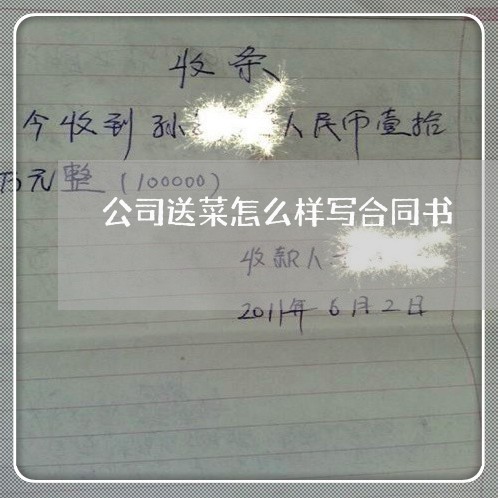 收条
今收到孙 人民币壹拾
万元整（100000）
公司送菜怎么样写合同书
收款人
2011年6月2日